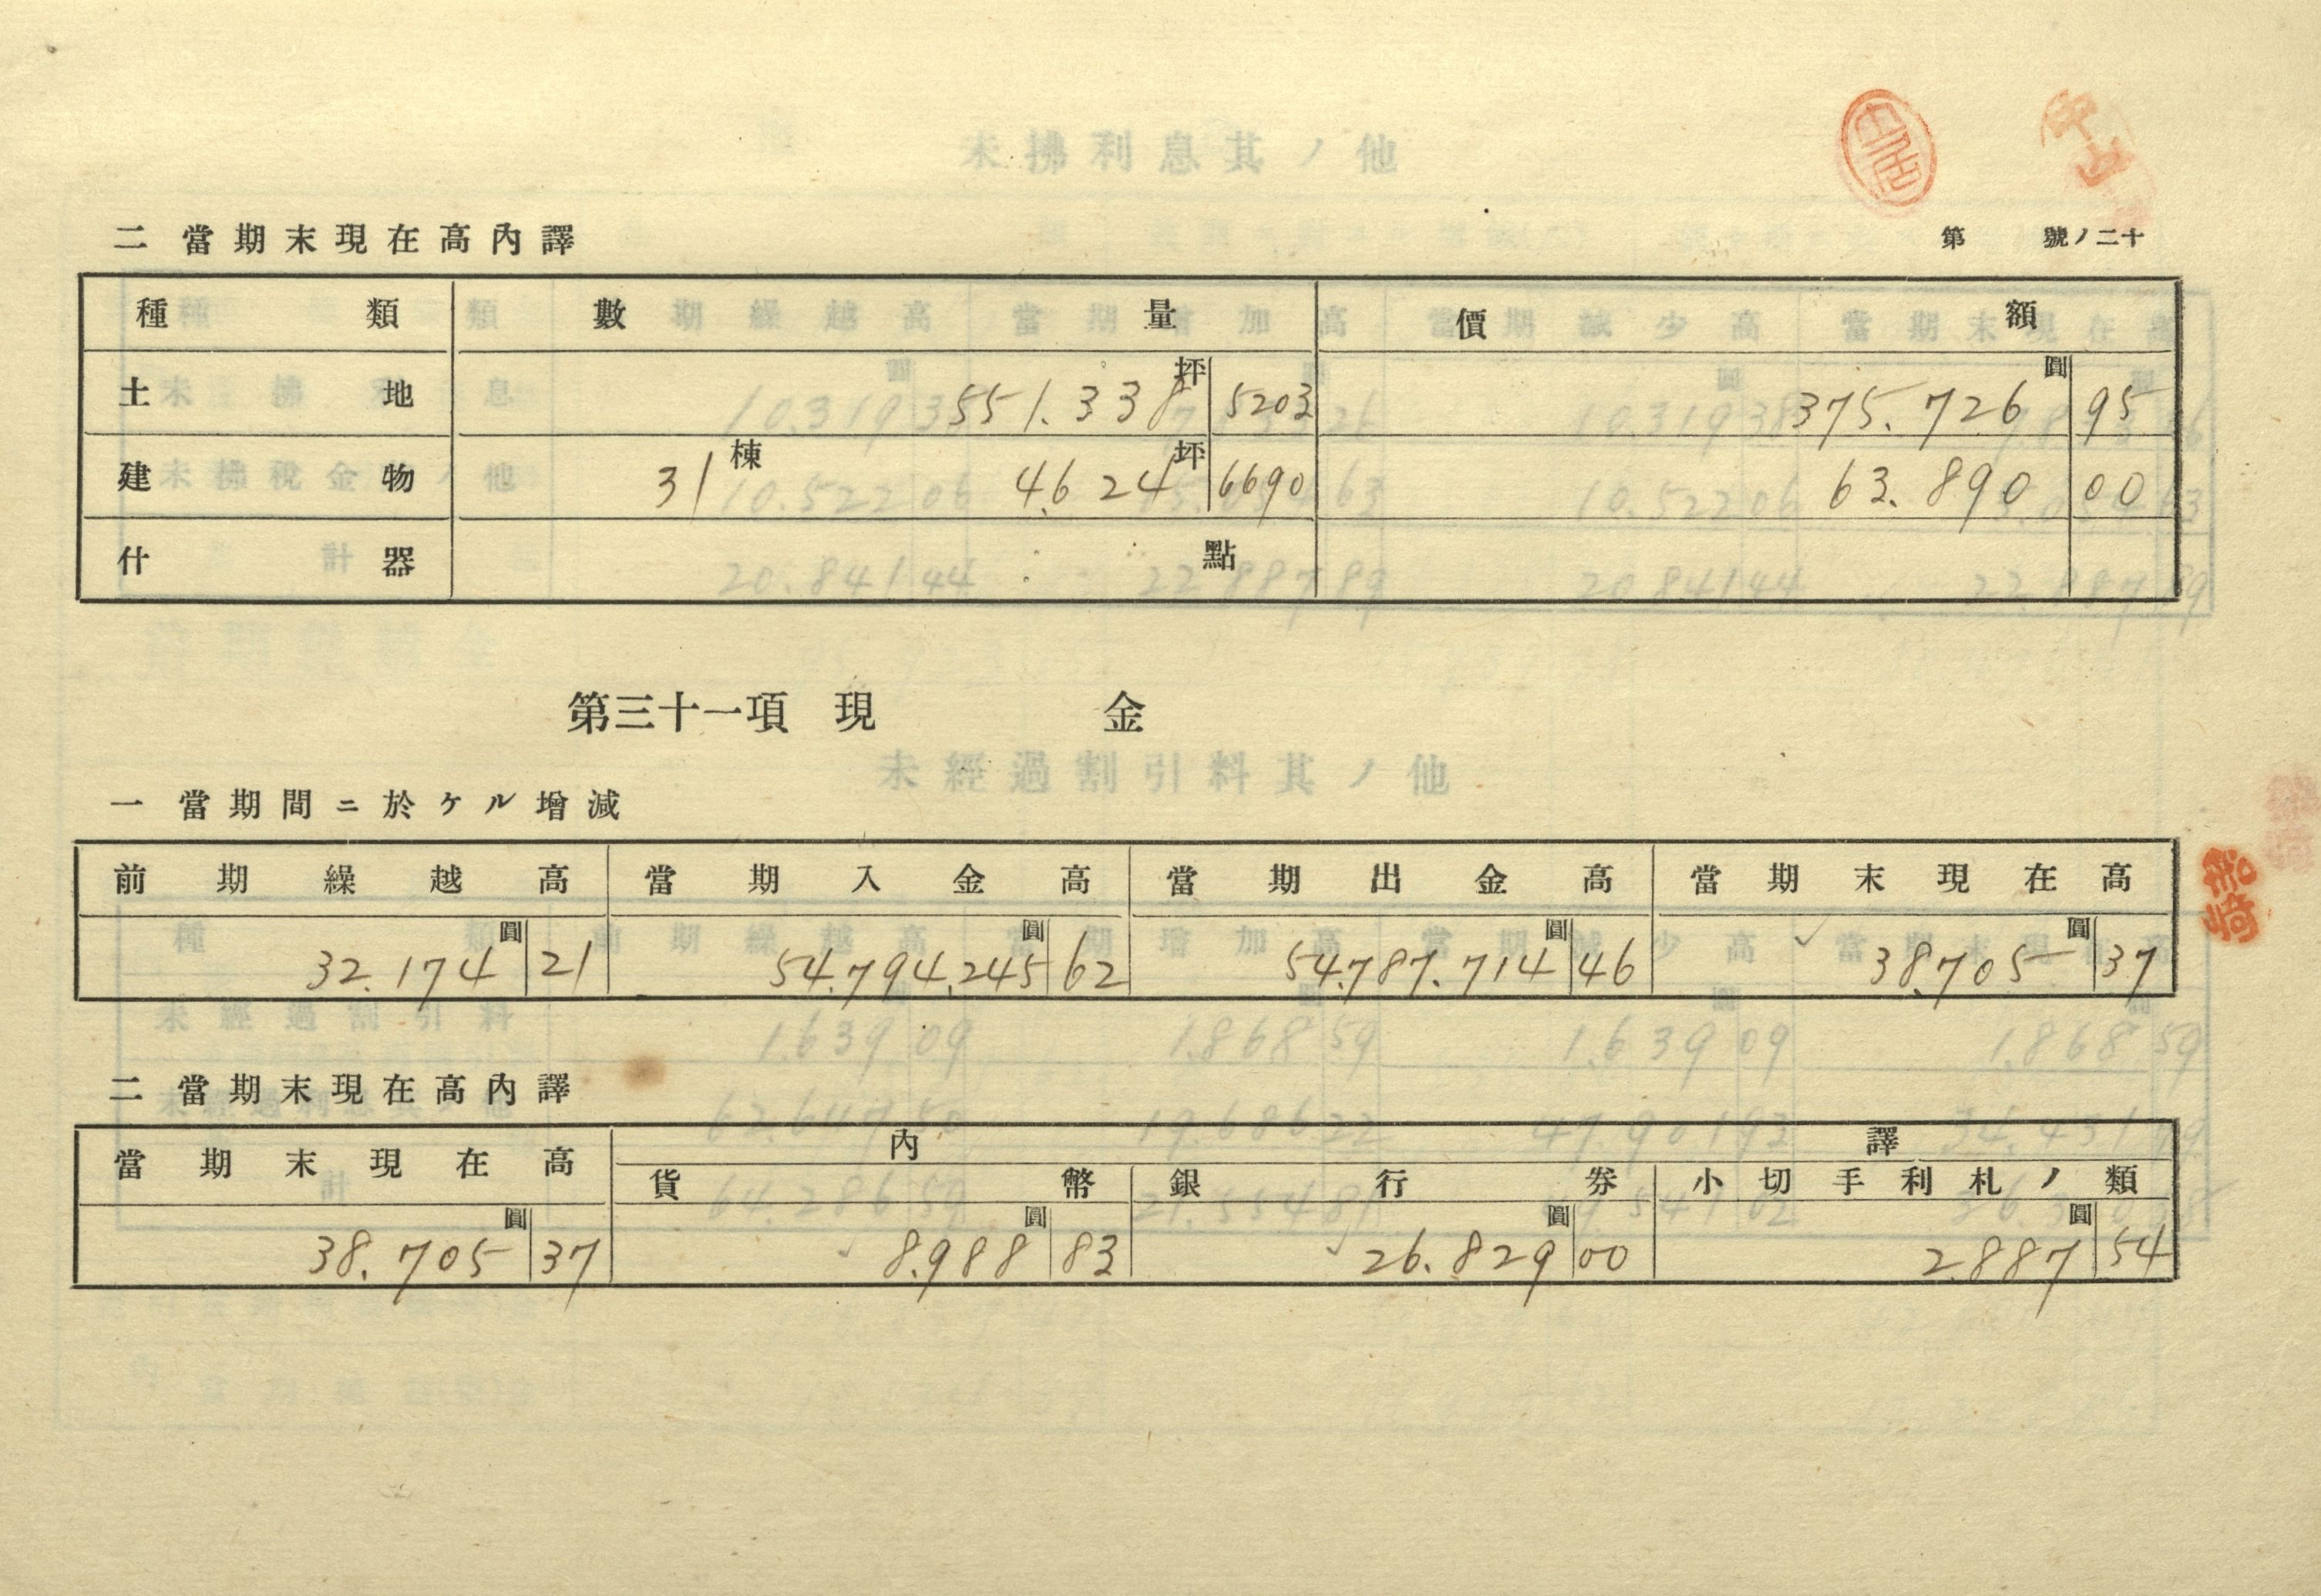 第 號ノ二十
二 當期末現在高內譯
種類 數量 價額
土地 551.338坪5203 375.726圓95
建物 31棟 4.624坪6690 63.890圓00
什器 點
第三十一項 現金
一 當期間ニ於ケル增減
前期繰越高 當期入金高 當期出金高 當期末現在高
32.174圓21 54.794.245圓62 54.787.714圓46 38.705圓37
二 當期末現在高內譯
當期末現在高 內譯
貨幣 銀行券 小切手利札ノ類
38.705圓37 8.988圓83 26.829圓00 2.887圓54